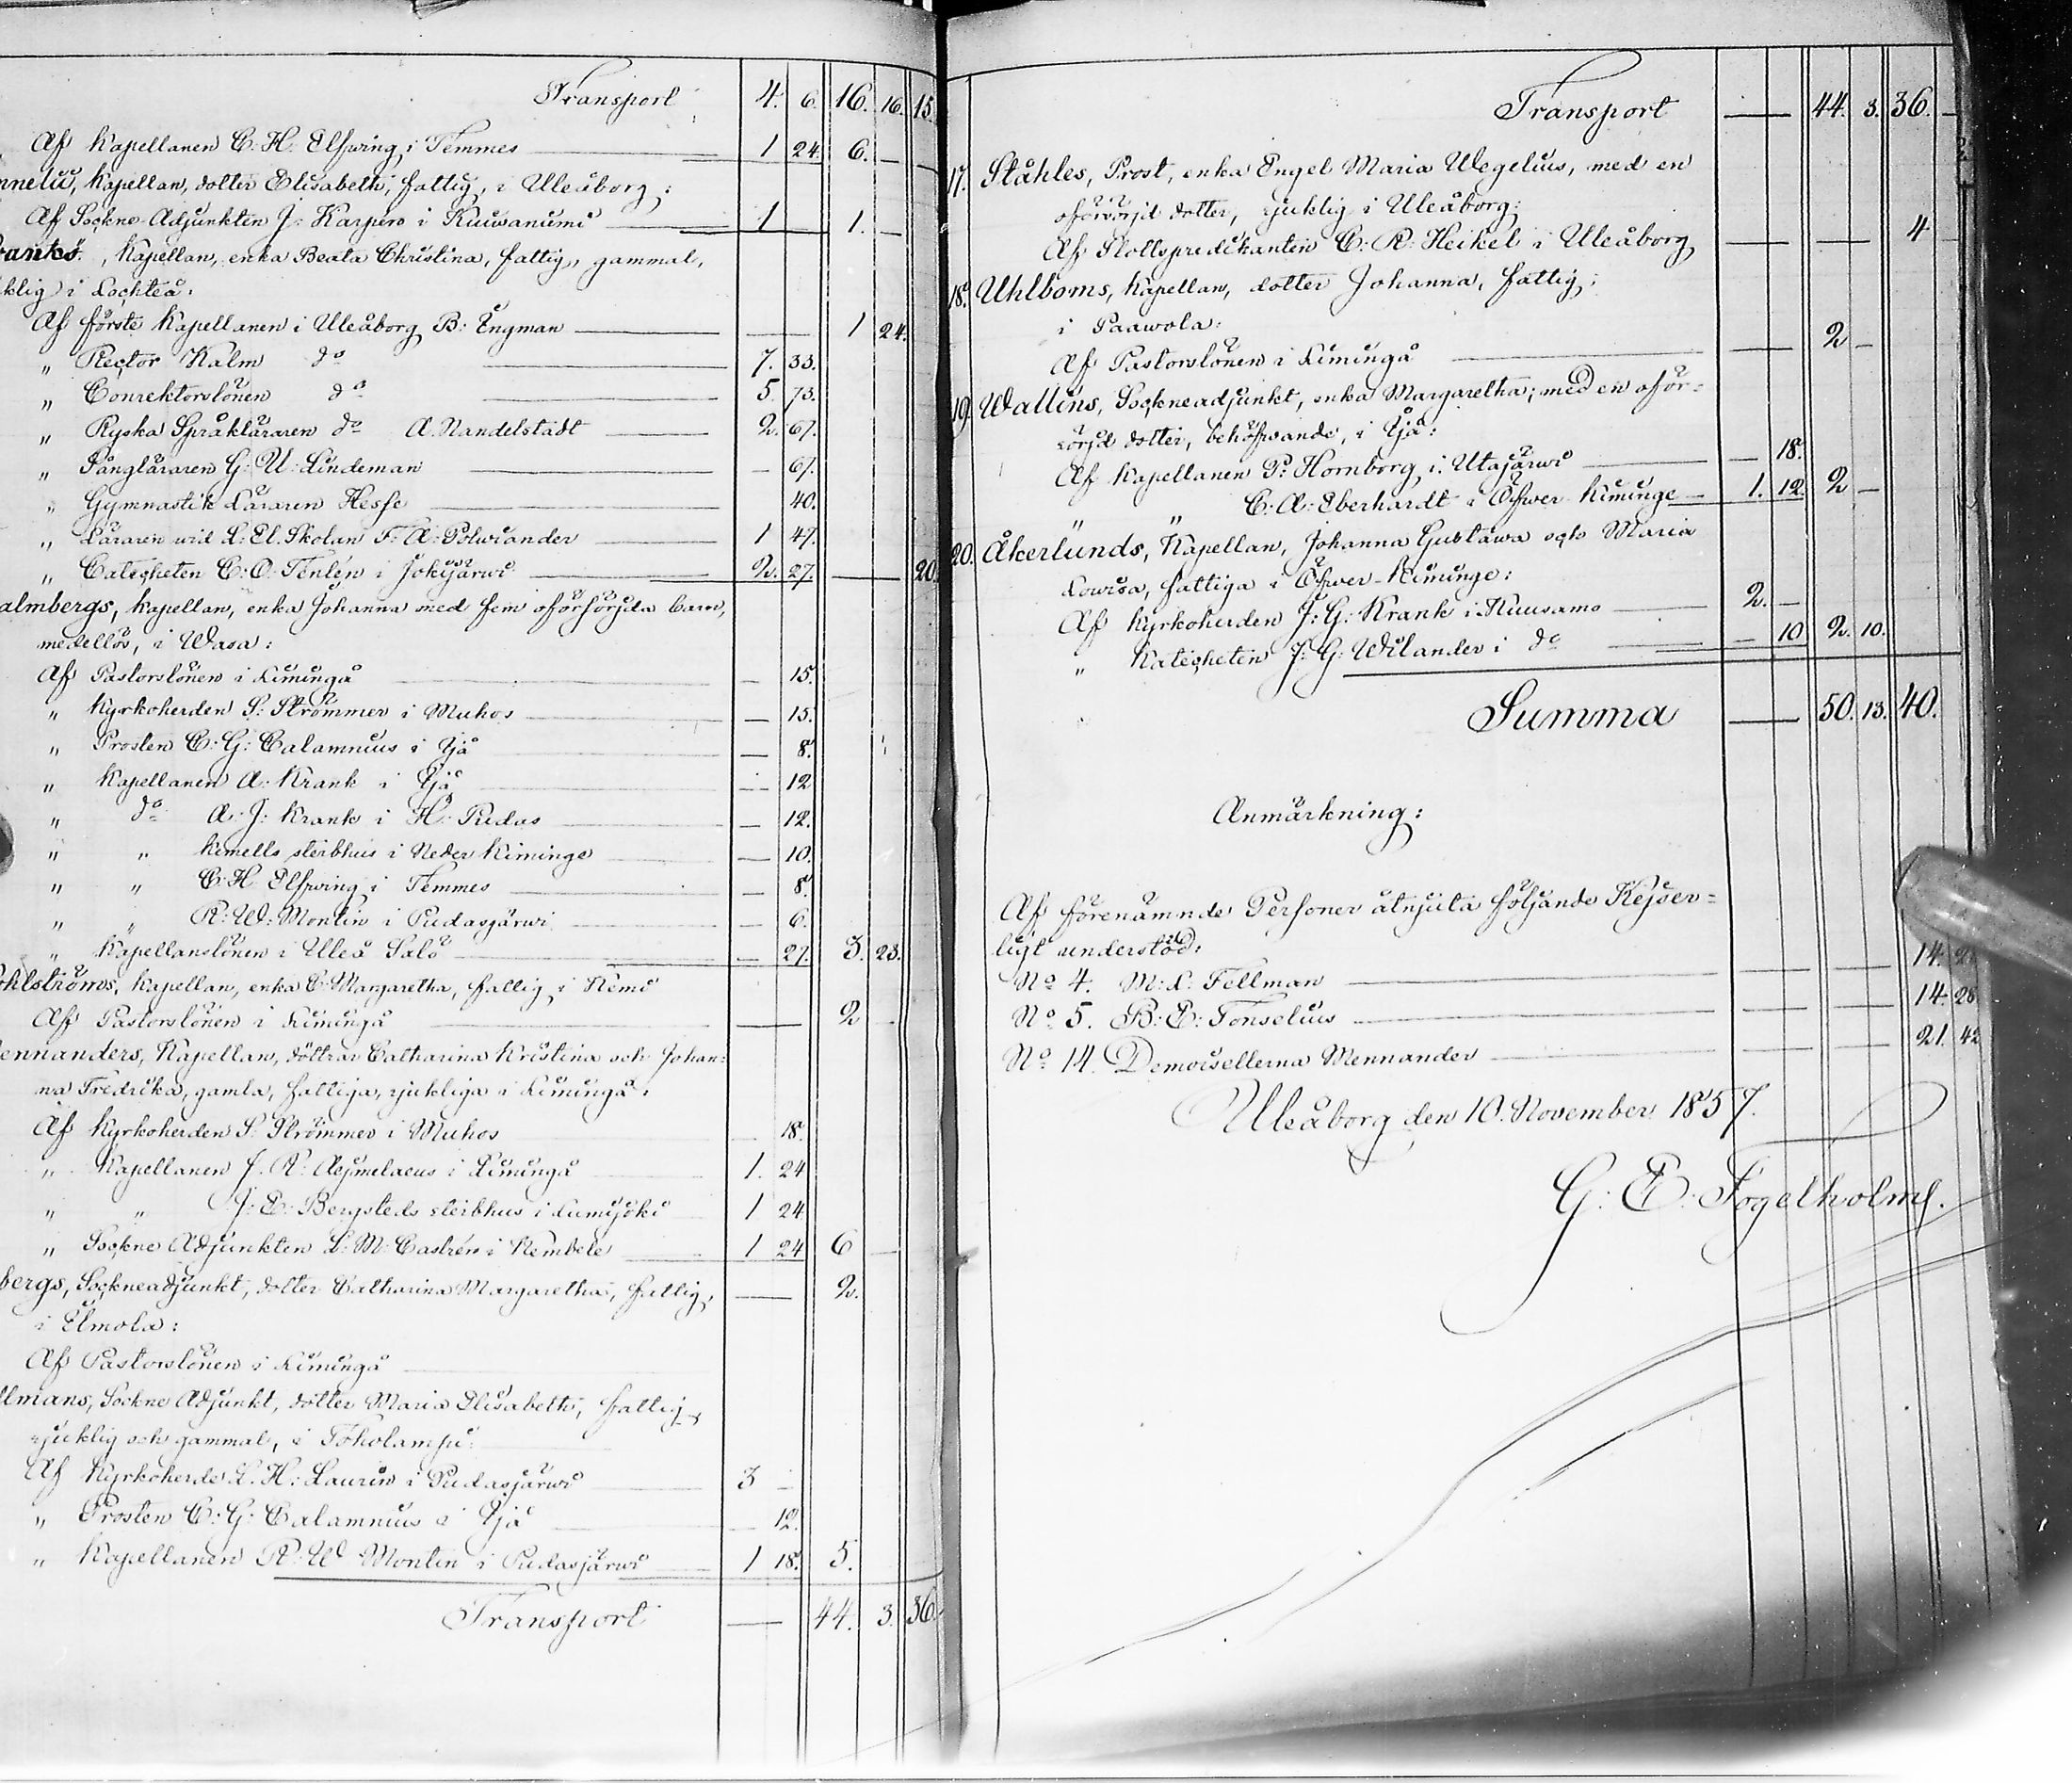 Transport 4. 6. 16. 16. 15.
Af Kapellanen C: H: Elfwing i Temmes 1 24 6. —
nnelii, Kapellan, dotter Elisabeth, fattig, i Uleåborg;
Af Sockne-Adjunkten J: Karpero i Kuiwaniemi 1 — 1. —
ranks, Kapellan, enka Beata Christina, fattig, gammal,
klig i Lochteå.
Af förste Kapellanen i Uleåborg B: Engman — 1 24.
„ Rector Kalm do 7. 33.
„ Conrektorslönen do 5. 73.
„ Ryska Språkläraren do A. Nandelstadt 2. 67.
„ Sångläraren G: U: Lindeman — 67.
„ Gymnastik Läraren Hesse 40.
„ Läraren wid L: El. Skolan F: A: Polwiander 1 47.
„ Catecheten C: O: Tenlén i Jokijärwi 2. 27. — 20.
almbergs, Kapellan, enka Johanna med fem oförsörjda barn,
medellös, i Wasa:
Af Pastorslönen i Limingå — 15.
„ Kyrkoherden S: Strömmer i Muhos — 15.
„ Prosten C: G: Calamnius i Ijå — 8.
„ Kapellanen A: Krank i Ijå — 12
„ do A: J: Krank i H: Pudas — 12.
„ „ Kemells sterbhus i Neder Kiminge — 10.
„ „ C: H Elfwing i Temmes — 8.
„ „ R: W: Montin i Pudasjärwi — 6.
„ Kapellanslönen i Uleå Salo — 27. 3. 23.
ohlströms, Kapellan, enka C: Margaretha, fattig i Kemi
Af Pastorslönen i Limingå — 2 —
ennanders, Kapellan, döttrar Catharina Kristina och Johan-
na Fredrika, gamla, fattiga, sjukliga i Limingå:
Af Kyrkoherden S: Strömmer i Muhos — 18.
„ Kapellanen J. R: Aejmelaeus i Limingå 1. 24
„ „ J: E: Bergsteds sterbhus i Lumijoki 1 24
„ Sockne Adjunkten L: M: Castrén i Kembele 1 24 6 —
bergs, Sockneadjunkt, dotter Catharina Margaretha, fattig, — 2.
i Elmola:
Af Pastorslönen i Limingå
llmans, Sockne Adjunkt, dotter Maria Elisabeth, fattig,
sjuklig och gammal, i Toholampi:
Af Kyrkoherde L. H: Laurin i Pudasjärwi 3 —
„ Prosten C: G: Calamnius i Ijå — 12.
„ Kapellanen R: W Montin i Pudasjärwi 1 18. 5.
Transport — 44. 3. 36.
Transport — 44. 3. 36. —
17. Ståhles, Prost, enka Engel Maria Wegelius, med en
oförsörjd dotter, sjuklig i Uleåborg:
Af Slottspredikanten C: R: Heikel i Uleåborg — — — 4
18. Uhlboms, Kapellan, dotter Johanna, fattig;
i Paawola:
Af Pastorslönen i Limingå — 2 —
19. Wallins, Sockneadjunkt, enka Margaretha; med en oför-
sörjd dotter, behöfwande, i Ijå:
Af Kapellanen P: Hornborg i Utajärwi — 18.
„ „ C: A: Eberhardt i Öfwer Kiminge 1. 12 2 —
20. Åkerlunds, Kapellan, Johanna Gustawa och Maria
Lowisa, fattiga i Öfwer-Kiminge:
Af Kyrkoherden J: G: Krank i Kuusamo 2. —
„ Katecheten J: G: Wilander i do — 10 2. 10.
Summa — 50. 13. 40.
Anmärkning:
Af förenämnde Personer åtnjuta följande Kejser-
ligt understöd:
No 4. M: L: Fellman — — — 14.
No 5. B: E: Fonselius — — — 14. 28
No 14. Demoisellerna Mennander — — — 21. 42
Uleåborg den 10. November 1857.
G: E: Fogelholm.